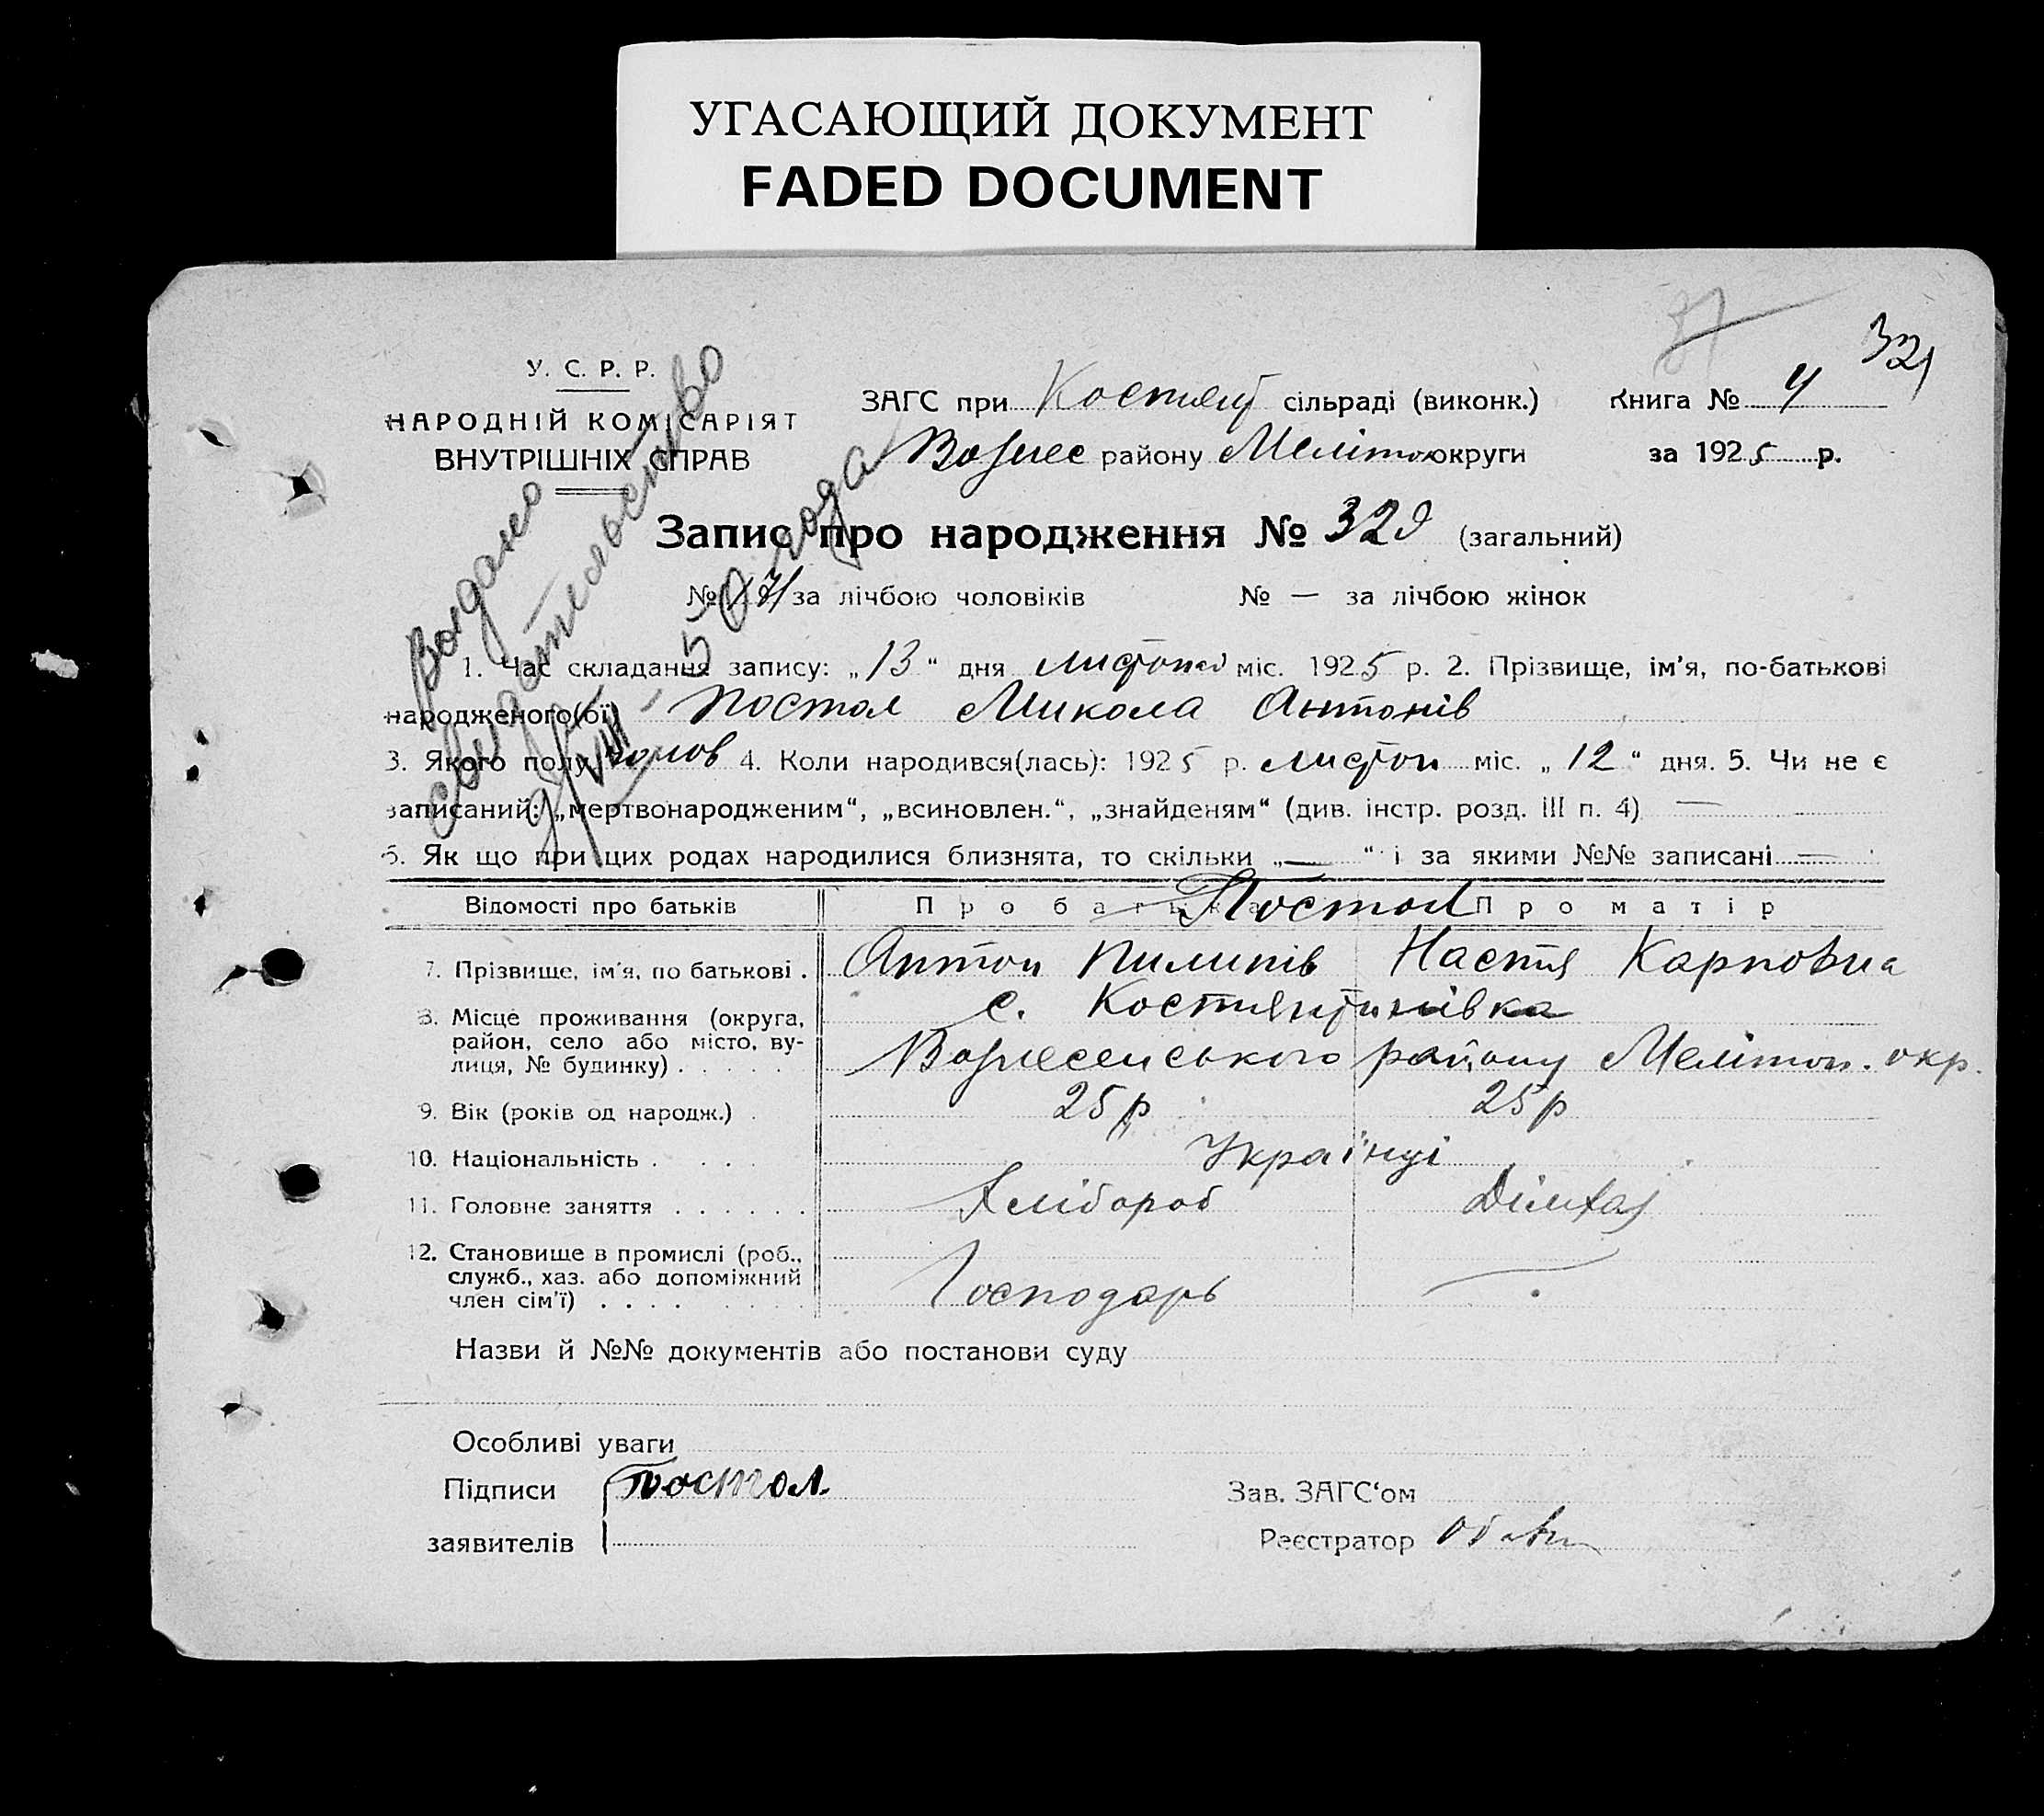 УГАСАЮЩИЙ ДОКУМЕНТ
FADED DOCUMENT
321
У. С. Р. Р.
НАРОДНІЙ КОМІСАРІЯТ
ВНУТРІШНІХ СПРАВ
ЗАГС при Костянт сільраді (виконк.) Книга № 4
Вознес району Меліток округи за 1925 р.
Выдано
свидетельство
9/VIII - 50 года
Запис про народження № 329 (загальний)
№ за лічбою чоловіків № — за лічбою жінок
1. Час складання запису: „13“ дня листопад міс. 1925 р. 2. Прізвище, ім'я, по-батькові
народженого(ої) Постол Микола Антонів
3. Якого полу чолов 4. Коли народився(лась): 1925 р. листоп міс. „12“ дня. 5. Чи не є
записаний: „мертвонародженим“, „всиновлен.“, „знайденям“ (див. інстр. розд. III п. 4) —
6. Як що при цих родах народилися близнята, то скільки „—“ і за якими №№ записані —
Відомості про батьків Про батька Про матір
Постол
7. Прізвище, ім'я, по батькові . Антон Пилипів Настя Карповна
8. Місце проживання (округа, район, село або місто, вулиця, № будинку) . . . . . . с. Костянтинівка
Вознесенського району Мелітоп. окр.
9. Вік (років од народж.) . 25 р 25 р
10. Національність . . . . Українці
11. Головне заняття . . . . . . Хлібороб Дімхаз
12. Становище в промислі (роб., служб., хаз. або допоміжний член сім'ї) . . . . Господарь —
Назви й №№ документів або постанови суду
Особливі уваги
Підписи Постол.
заявителів
Зав. ЗАГС'ом
Реєстратор